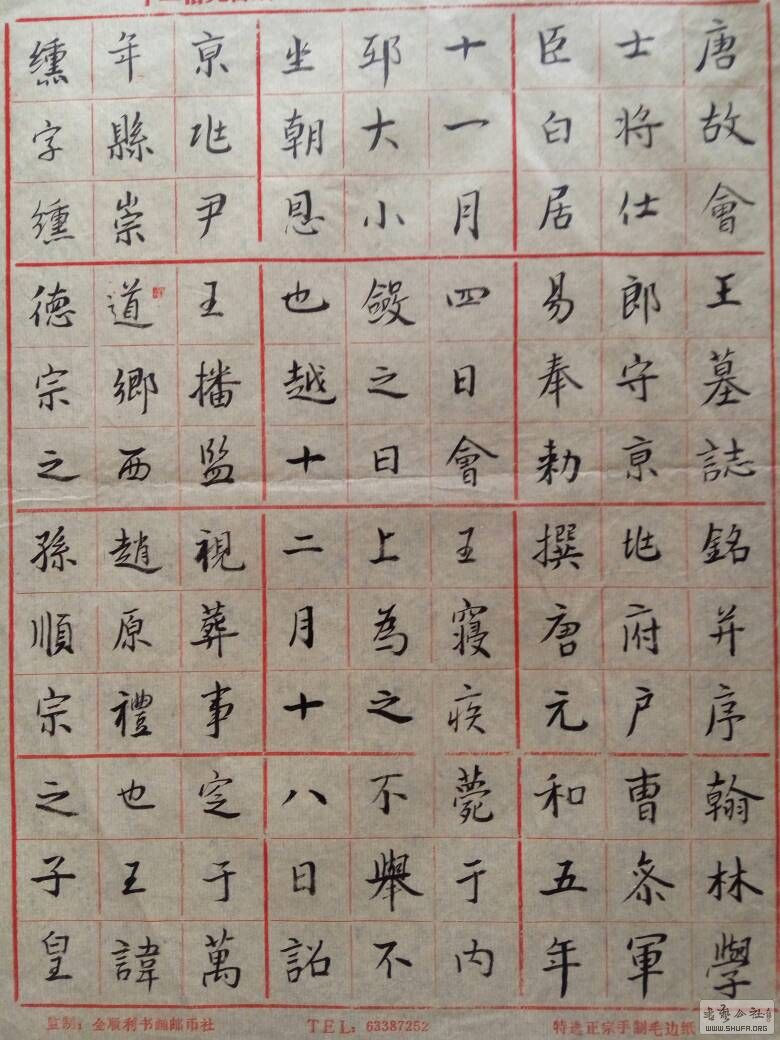 唐故會王墓誌銘并序翰林學
士將仕郎守京兆府户曹叅軍
臣白居易奉勑撰唐元和五年
十一月四日會王寢疾薨于内
邸大小斂之日上為之不舉不
坐朝恩也越十二月十八日詔
京兆尹王播監視葬事窆于萬
年縣崇道鄉西趙原禮也王諱
纁字纁德宗之孫順宗之子皇
监制：金顺利书画邮币社 TEL：63387252 特选正宗手制毛边纸
WWW.SHUFA.ORG